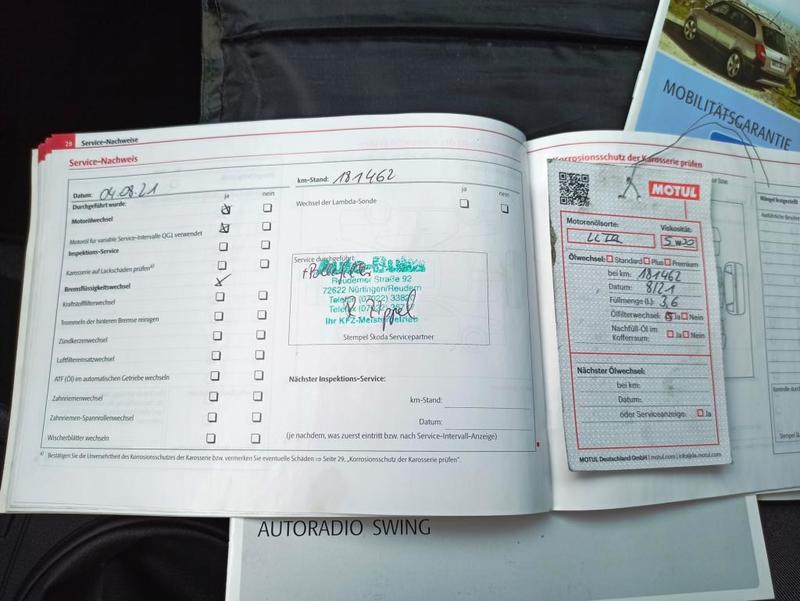 28 Service-Nachweise
Service-Nachweis
Datum: 04.08.21
km-Stand: 181462
Durchgeführt wurde: ja nein
ja nein
Motorölwechsel
Wechsel der Lambda-Sonde
Motoröl für variable Service-Intervalle QG1 verwendet
Inspektions-Service
Karosserie auf Lackschäden prüfen a)
Bremsflüssigkeitswechsel
Kraftstofffilterwechsel
Trommeln der hinteren Bremse reinigen
Zündkerzenwechsel
Luftfiltereinsatzwechsel
ATF (Öl) im automatischen Getriebe wechseln
Zahnriemenwechsel
Zahnriemen-Spannrollenwechsel
Wischerblätter wechseln
Service durchgeführt
+Pollenfilter
Reuderner Straße 92
72622 Nürtingen/Reudern
Telefon (07022)
Ihr KFZ-Meisterbetrieb
Stempel Škoda Servicepartner
Nächster Inspektions-Service:
km-Stand:
Datum:
(je nachdem, was zuerst eintritt bzw. nach Service-Intervall-Anzeige)
a) Bestätigen Sie die Unversehrtheit des Korrosionsschutzes der Karosserie bzw. vermerken Sie eventuelle Schäden ⇒ Seite 29, „Korrosionsschutz der Karosserie prüfen“.
Korrosionsschutz der Karosserie prüfen
MOTUL
Motorenölsorte: Viskosität:
5W30
Ölwechsel: Standard Plus Premium
bei km: 181462
Datum: 8/21
Füllmenge (L): 3,6
Ölfilterwechsel: Ja Nein
Nachfüll-Öl im
Kofferraum: Ja Nein
Nächster Ölwechsel:
bei km:
Datum:
oder Serviceanzeige: Ja
MOTUL Deutschland GmbH | motul.com | info@de.motul.com
MOBILITÄTSGARANTIE
AUTORADIO SWING